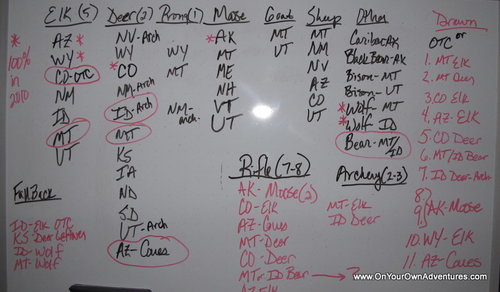 Elk (5)
* AZ *
* WY *
100% in 2010
CO-OTC
NM
ID
MT
UT
Deer(3)
NV-Arch
WY
* CO
NM-Arch
ID-Arch
MT
KS
IA
ND
SD
UT-Arch
AZ-Coues
Prong(1)
WY
MT
NM-arch.
Moose
* AK
MT
ME
NH
VT
UT
Goat
MT
UT
Sheep
MT
NM
NV
AZ
CO
UT
Other
Caribou AK
Black Bear-AK
Bison-MT
Bison-UT
* Wolf-MT
* Wolf-ID
Bear-MT/ID
Drawn or OTC
1. MT Elk
2. MT Deer
3. CO Elk
4. AZ-Elk
5. CO Deer
6. MT/ID Bear
7. ID Deer-Arch
8)
9) AK-Moose
10. WY-Elk
11. AZ-Coues
Fall Back
ID-Elk OTC
KS Deer Leftovers
ID-Wolf
MT-Wolf
Rifle (7-8)
AK-Moose(2)
CO-Elk
AZ-Coues
MT-Deer
CO-Deer
MT or ID Bear → ?
AZ Elk
Archery(2-3)
MT-Elk
ID Deer
www.OnYourOwnAdventures.com